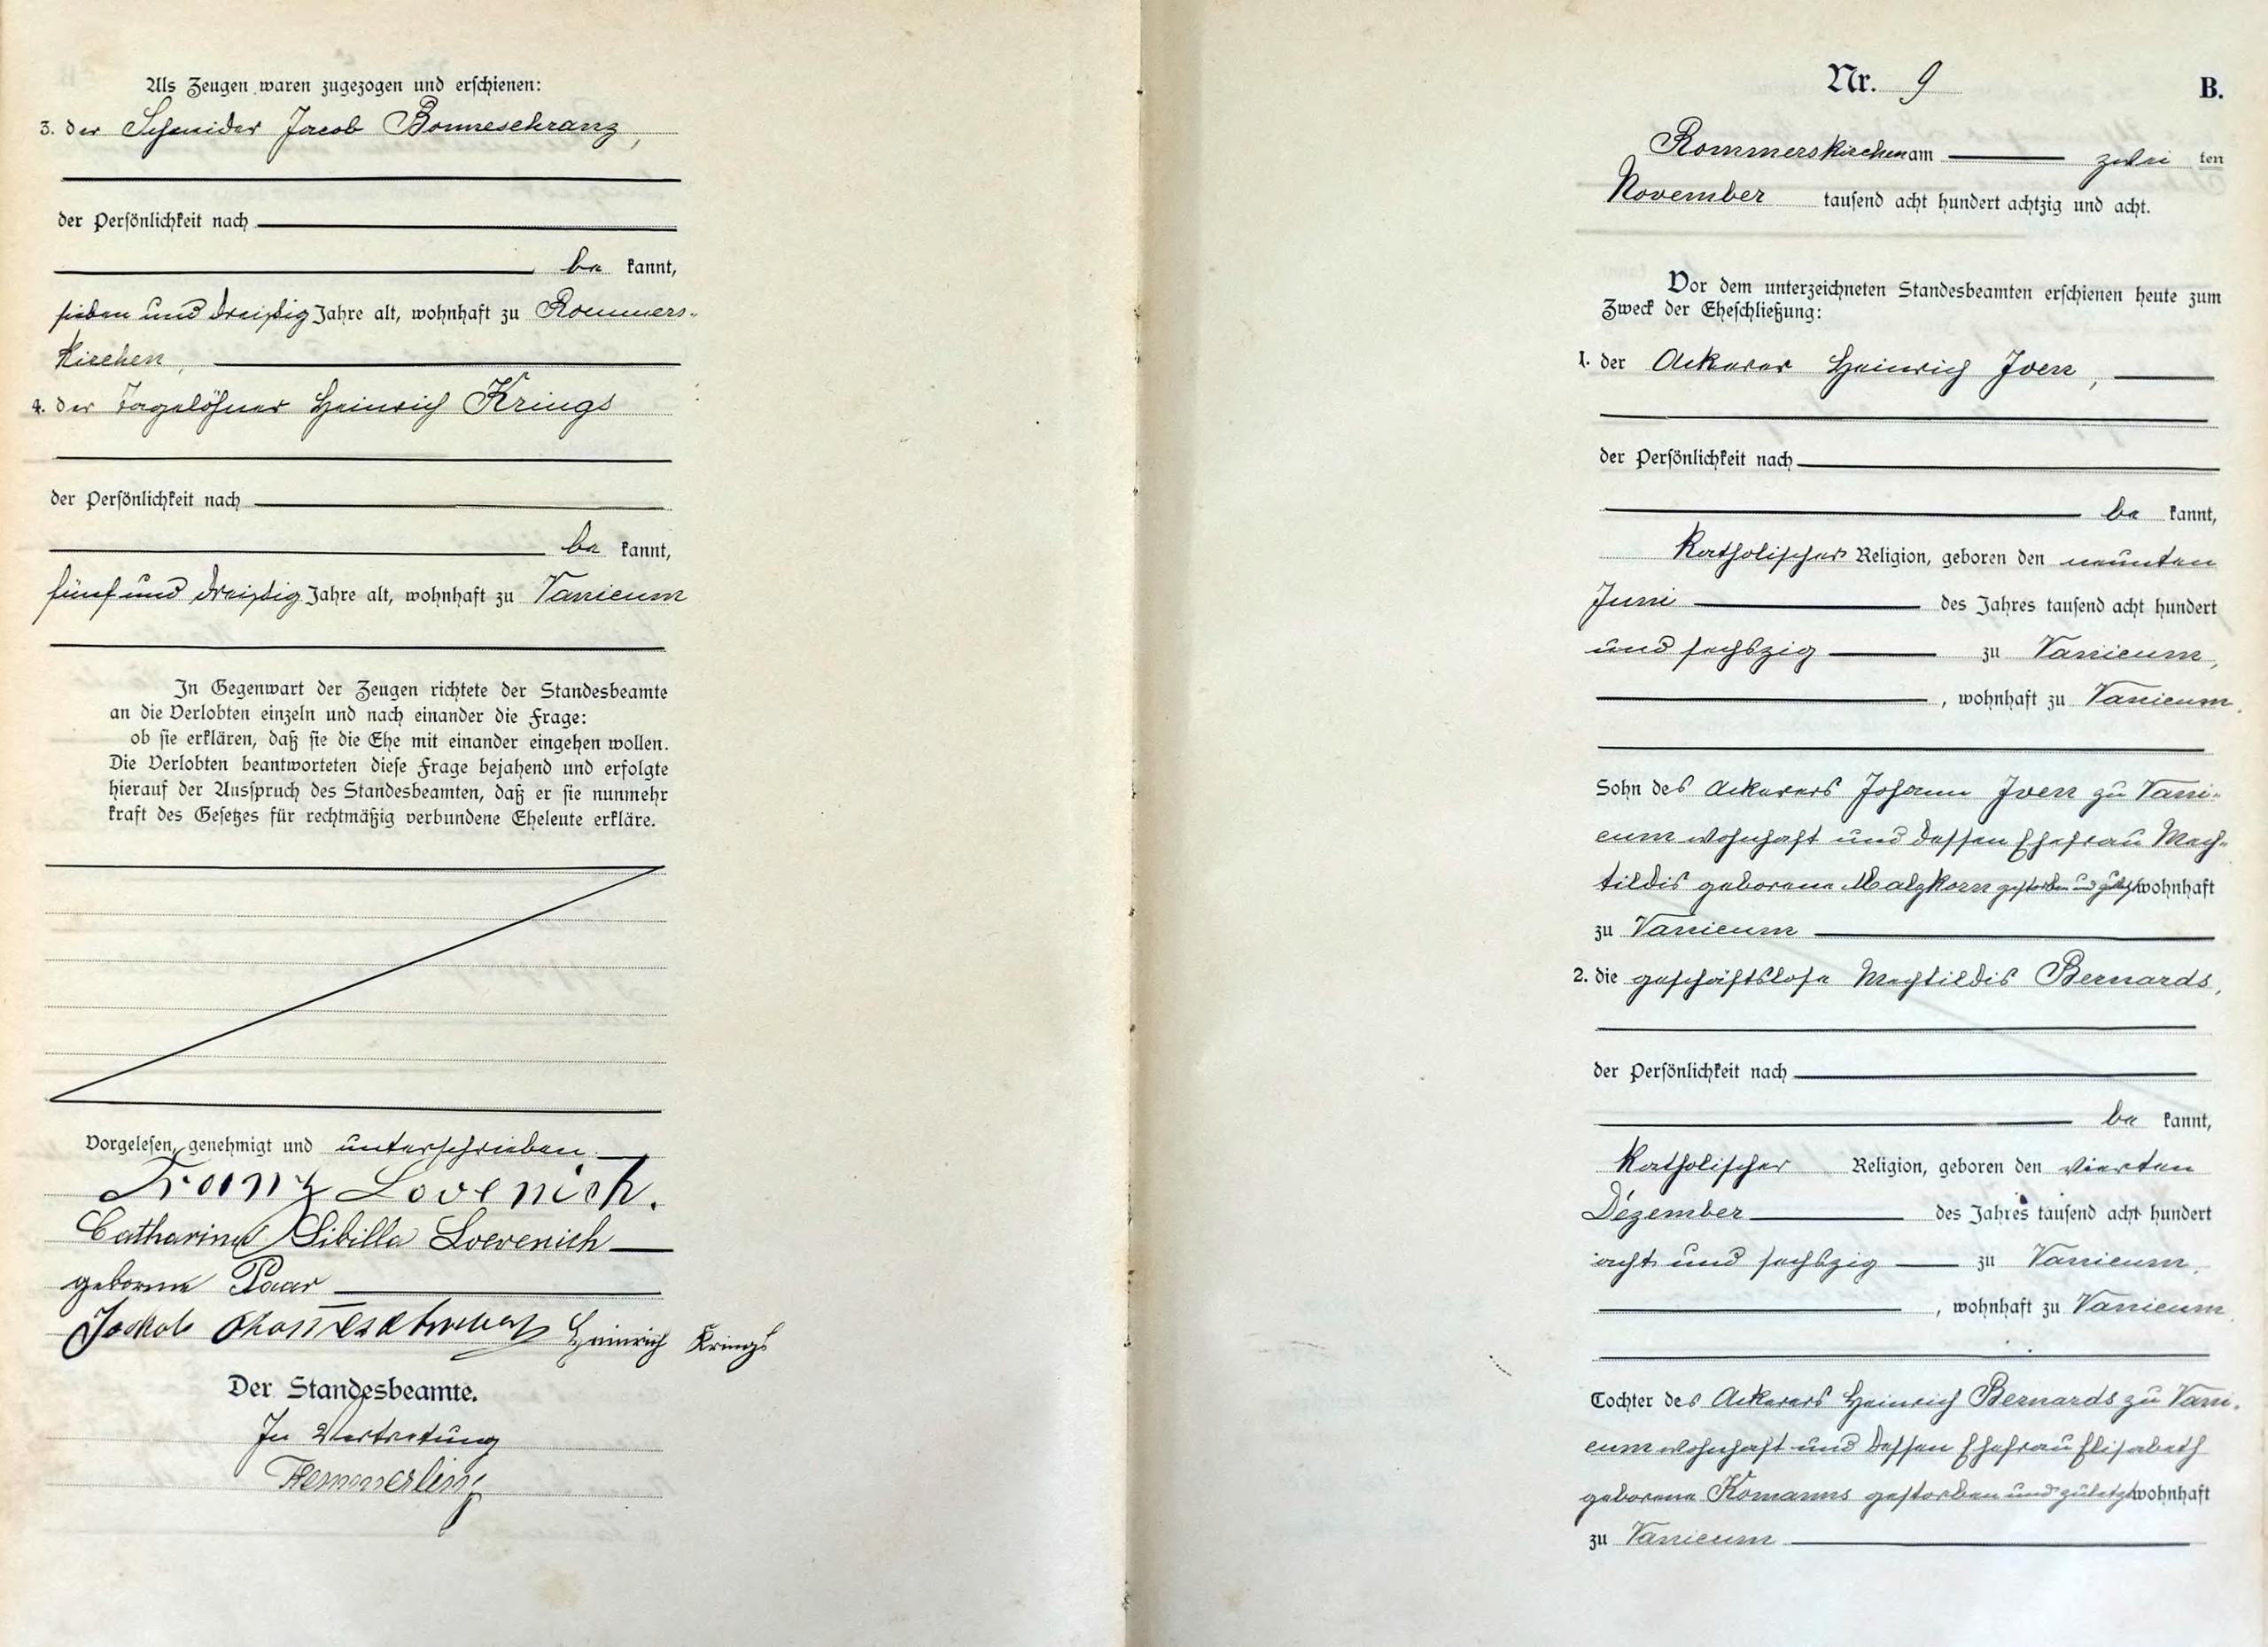 Als Zeugen waren zugezogen und erschienen:
3. der Schneider Jacob Bonneschranz,
der Persönlichkeit nach
be kannt,
sieben und dreißig Jahre alt, wohnhaft zu Rommers-
kirchen,
4. der Tagelöhner Heinrich Krings
der Persönlichkeit nach
be kannt,
fünf und dreißig Jahre alt, wohnhaft zu Vanicum
In Gegenwart der Zeugen richtete der Standesbeamte
an die Verlobten einzeln und nach einander die Frage:
ob sie erklären, daß sie die Ehe mit einander eingehen wollen.
Die Verlobten beantworteten diese Frage bejahend und erfolgte
hierauf der Ausspruch des Standesbeamten, daß er sie nunmehr
kraft des Gesetzes für rechtmäßig verbundene Eheleute erkläre.
Vorgelesen, genehmigt und unterschrieben.
Franz Lovenich.
Catharina Sibilla Loevenich
geborene Paar
Jackob Heinrich Krings
Der Standesbeamte.
In Vertretung
Hemmerling
Nr. 9 B.
Rommerskirchen am zwei ten
November tausend acht hundert achtzig und acht.
Vor dem unterzeichneten Standesbeamten erschienen heute zum
Zweck der Eheschließung:
1. der Ackerer Heinrich Iven,
der Persönlichkeit nach
be kannt,
katholischer Religion, geboren den neunten
Juni des Jahres tausend acht hundert
und sechszig zu Vanicum,
, wohnhaft zu Vanicum,
Sohn des Ackerers Johann Iven zu Vani-
cum wohnhaft und dessen Ehefrau Mech-
tildis geborene Malzkorn gestorben und zuletzt wohnhaft
zu Vanicum
2. die geschäftslose Mechtildis Bernards,
der Persönlichkeit nach
be kannt,
katholischer Religion, geboren den vierten
Dezember des Jahres tausend acht hundert
acht und sechszig zu Vanicum,
, wohnhaft zu Vanicum,
Tochter des Ackerers Heinrich Bernards zu Vani-
cum wohnhaft und dessen Ehefrau Elisabeth
geborene Komanns gestorben und zuletzt wohnhaft
zu Vanicum